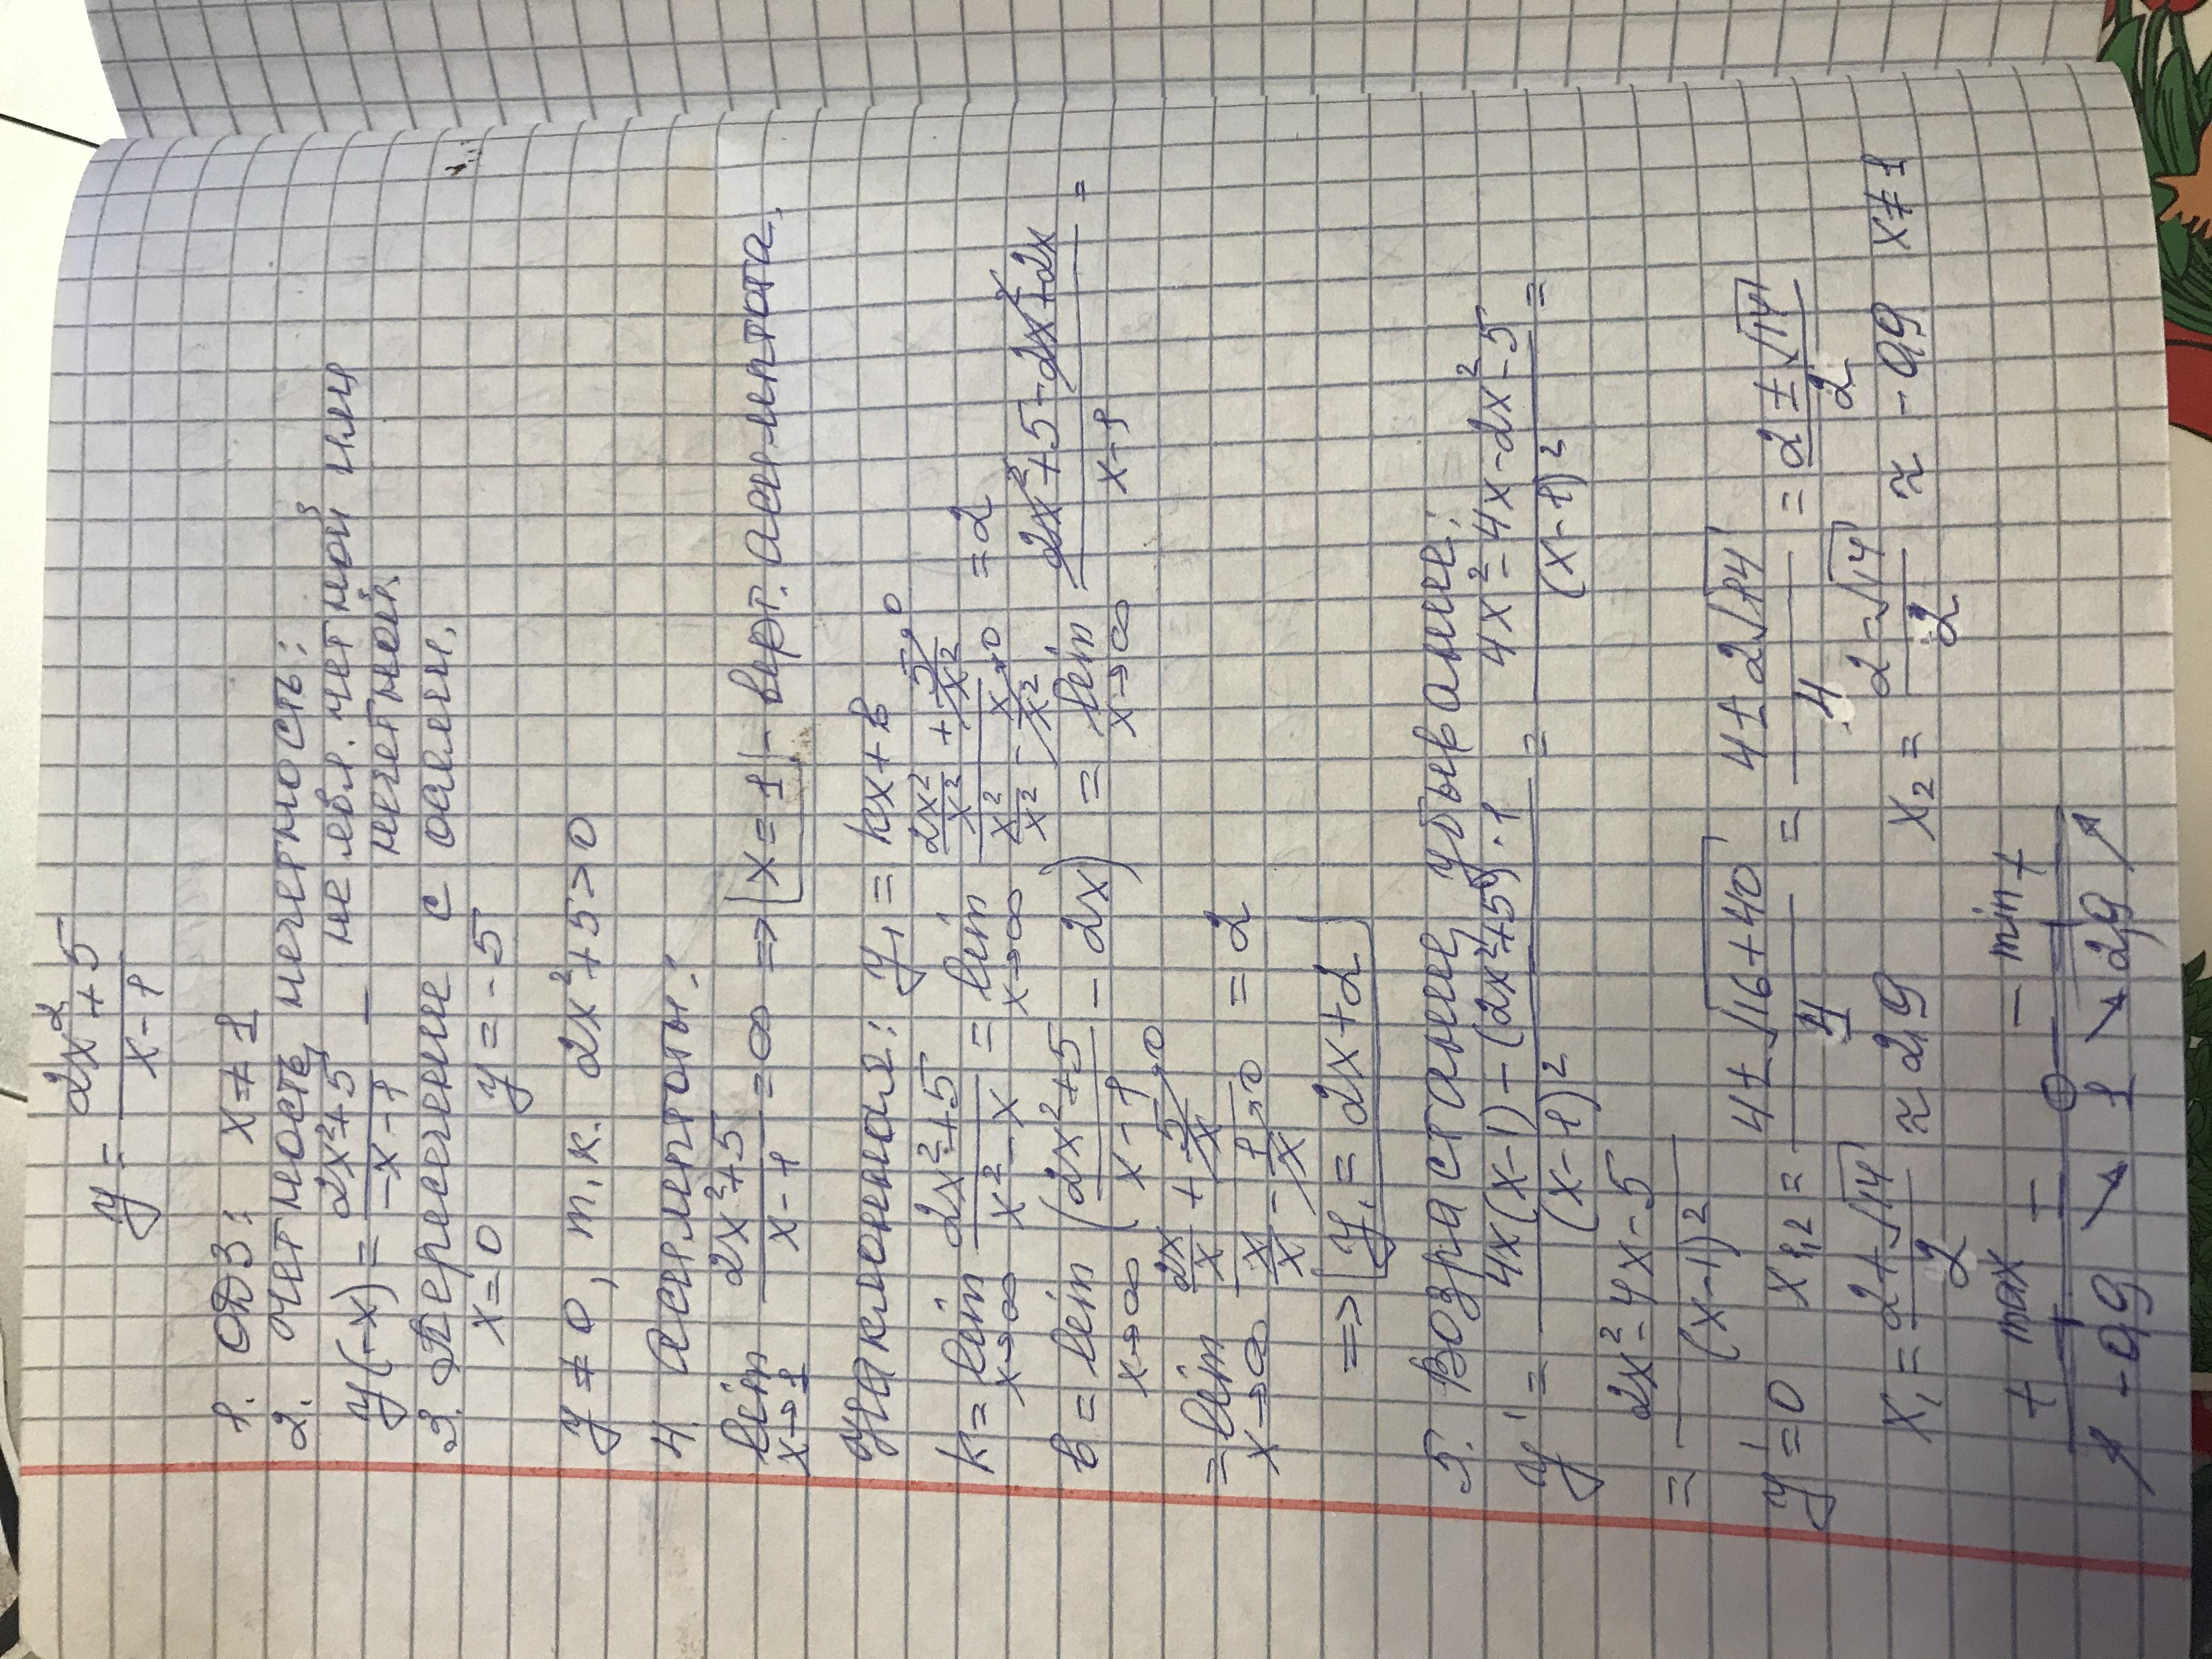 y = (2x²+5)/(x-1)
1. ОДЗ: x ≠ 1
2. Четность, нечетность:
y(-x) = (2x²+5)/(-x-1) - не явл. четной или
нечетной.
3. Пересечение с осями.
x=0 y=-5
y ≠ 0, т.к. 2x²+5>0
4. Асимптоты:
lim x→1 (2x²+5)/(x-1) = ∞ ⇒ x=1 - верт. асимптота.
Наклонная: y₁ = kx+b
k = lim x→∞ (2x²+5)/(x²-x) = lim x→∞ (2x²/x² + 5/x²→0)/(x²/x² - x/x²→0) = 2
b = lim x→∞ ((2x²+5)/(x-1) - 2x) = lim x→∞ (2x²+5-2x²+2x)/(x-1) =
= lim x→∞ (2x/x + 5/x→0)/(x/x - 1/x→0) = 2
⇒ y₁ = 2x+2
5. Возрастание, убывание:
y' = (4x(x-1) - (2x²+5)·1)/(x-1)² = (4x²-4x-2x²-5)/(x-1)² =
= (2x²-4x-5)/(x-1)²
y'=0 x₁,₂ = (4±√(16+40))/4 = (4±2√14)/4 = (2±√14)/2
x₁ = (2+√14)/2 ≈ 2,9 x₂ = (2-√14)/2 ≈ -0,9 x≠1
+ max - - min +
↗ -0,9 ↘ 1 ↘ 2,9 ↗